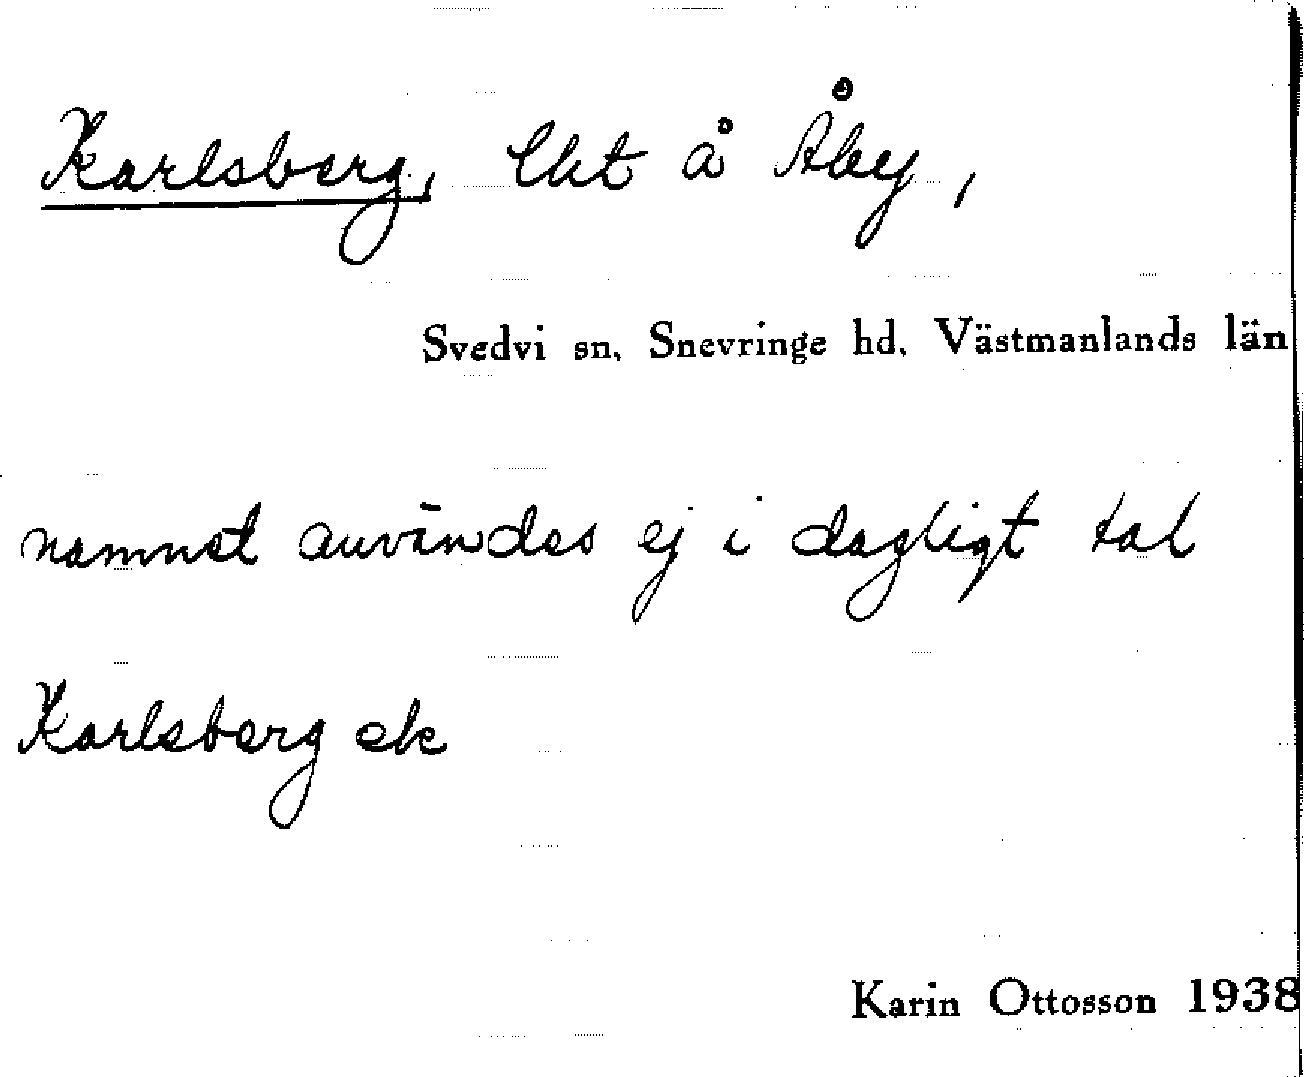 Karlsberg, lht å Åby,
Svedvi sn, Snevringe hd, Västmanlands län
namnet användes ej i dagligt tal
Karlsberg ek
Karin Ottosson 1938